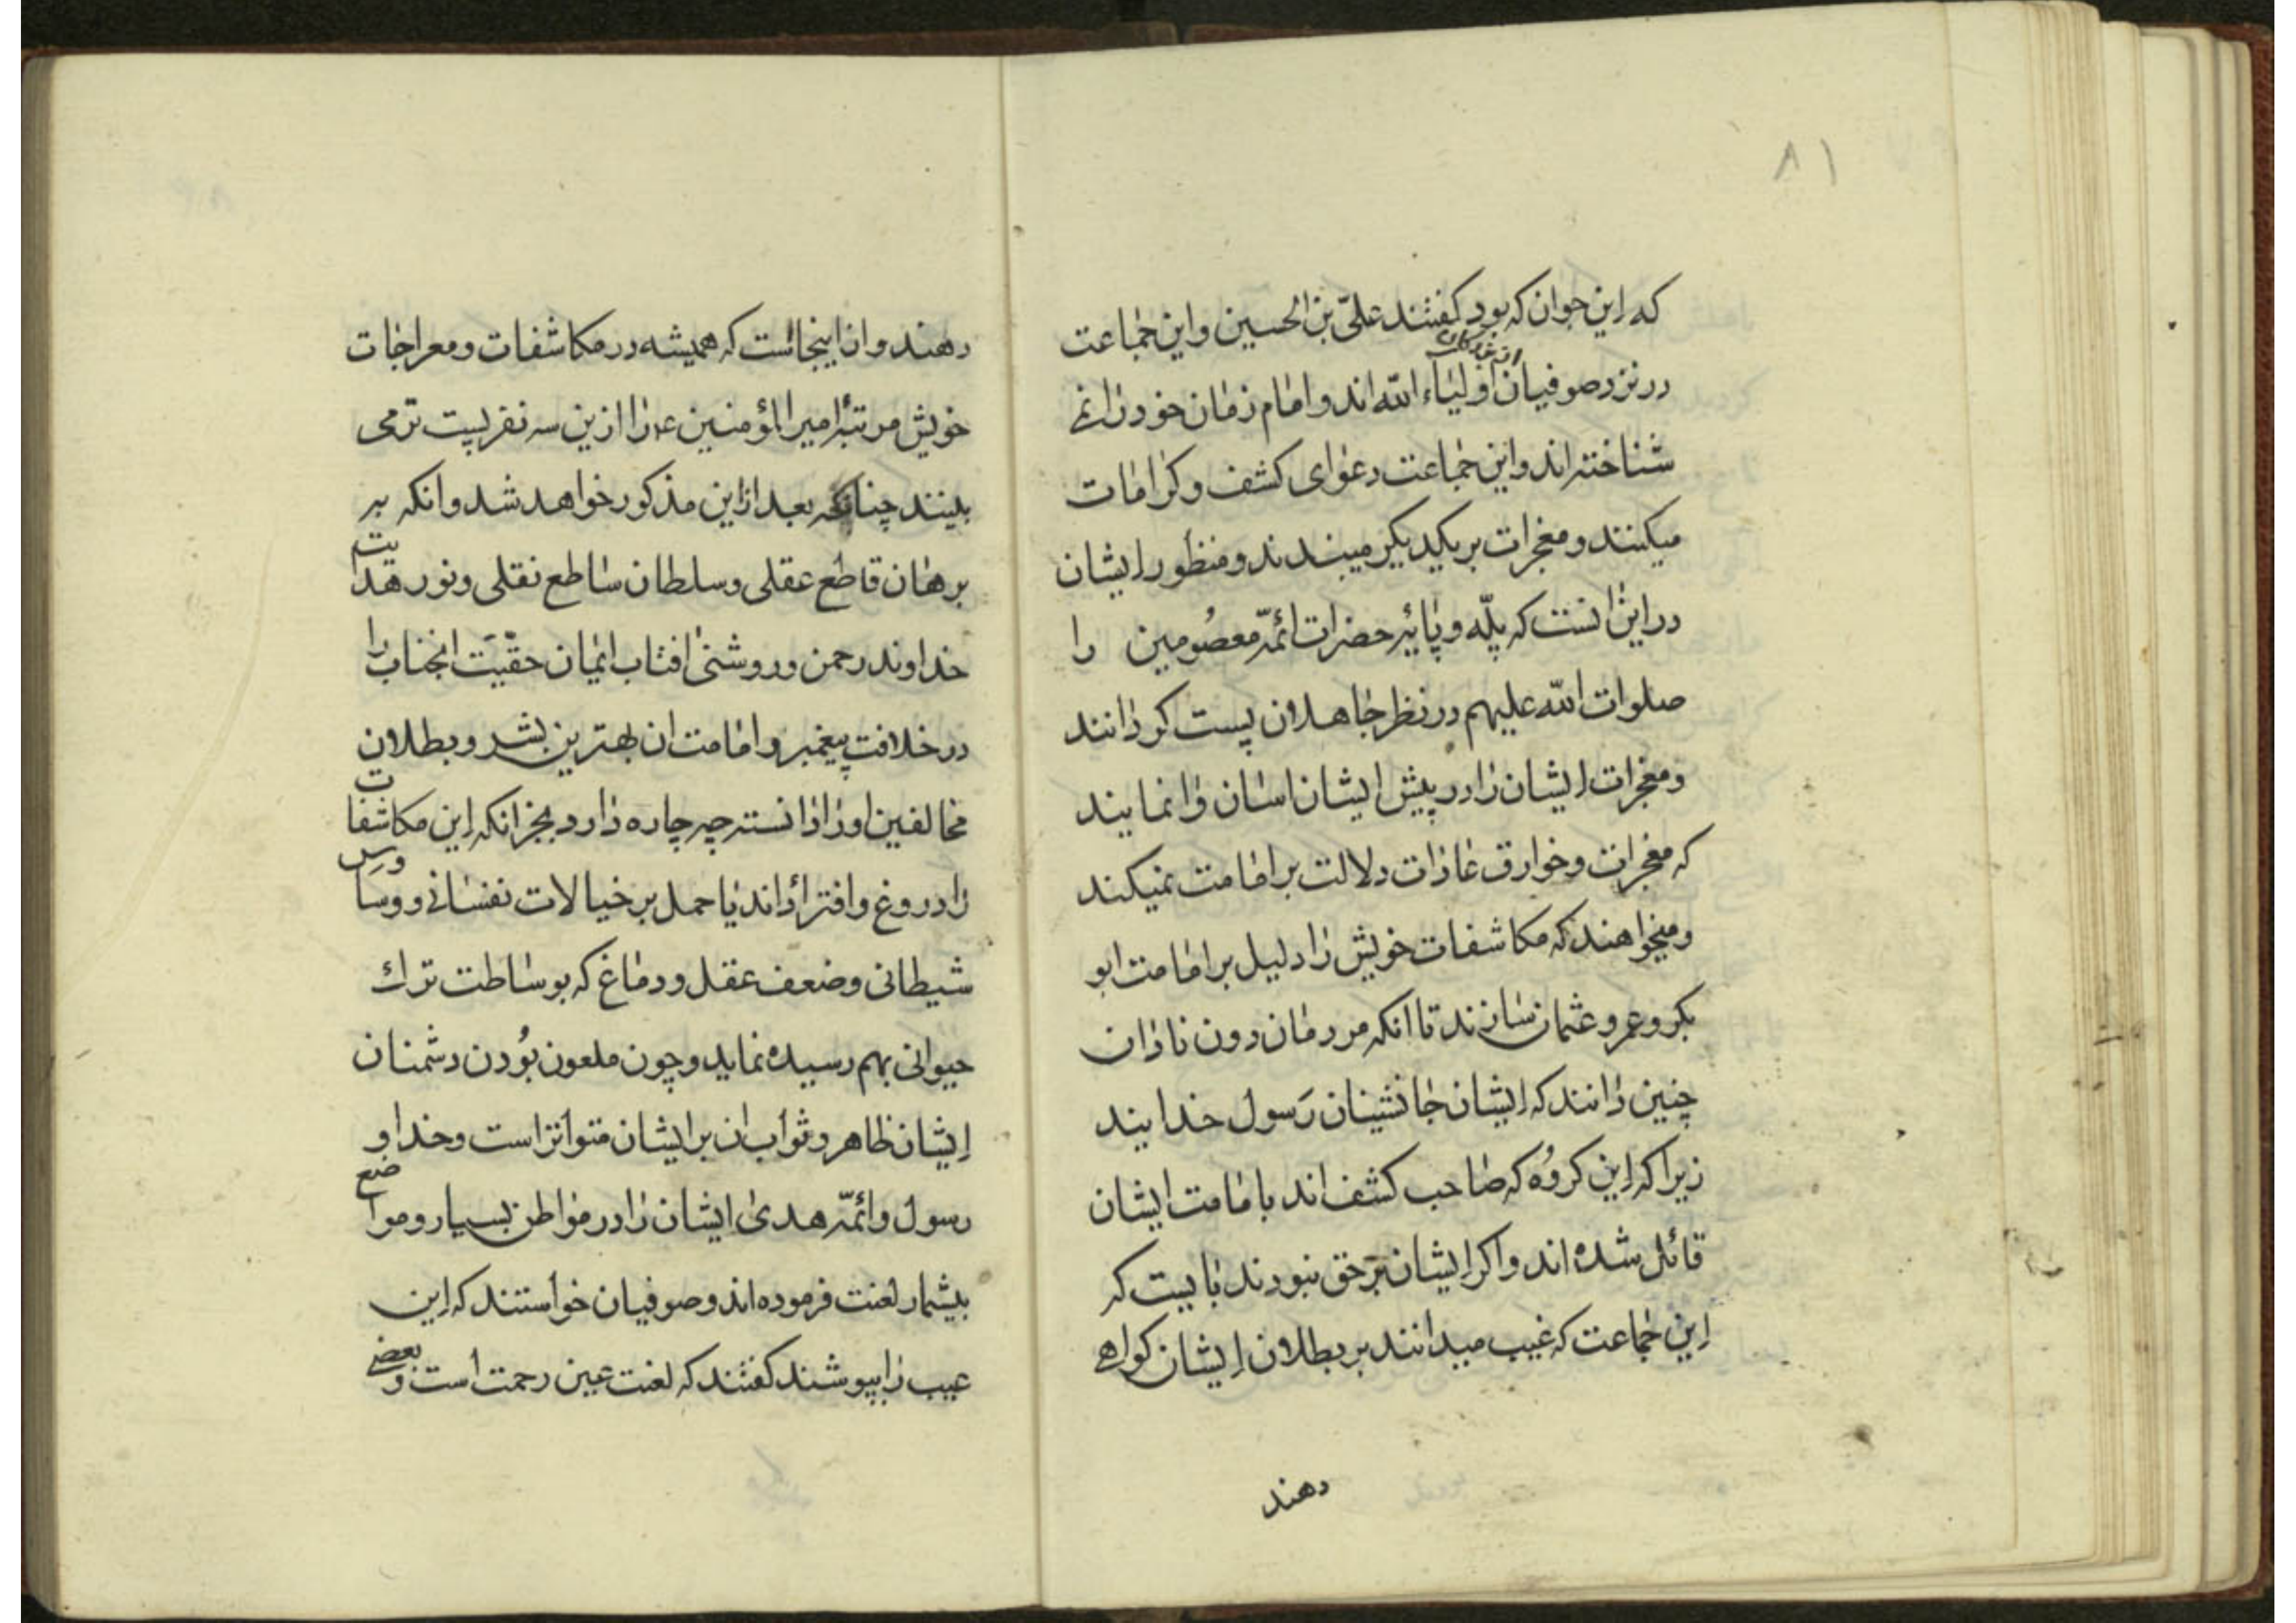 ۸۱
که این جوان که بود کفتند علیّ بن الحسین و این جماعت
در نزد صوفیان از بزرکان اولیاء الله اند و امام زمان خود را نمی
شناخته اند و این جماعت دعوای کشف و کرامات
میکنند و معجزات بر یکدیکر میبندند و منظور ایشان
در این انست که پلّه و پایهٔ حضرات ائمّهٔ معصُومین را
صلوات الله علیهم در نظر جاهلان پست کردانند
و معجزات ایشان را در پیش ایشان اسان وانمایند
که معجزات و خوارق عادات دلالت بر امامت نمیکند
و میخواهند که مکاشفات خویش را دلیل بر امامت ابو
بکر و عمر و عثمان سازند تا انکه مردمان دون نادان
چنین دانند که ایشان جانشینان رَسول خدایند
زیرا که این کروُه که صاحب کشف اند بامامت ایشان
قائل شده اند و اکر ایشان بَرحق نبودند بایست که
این جماعت که غیب میدانند بر بطلان ایشان کواهی
دهند
دهند و از اینجاست که همیشه در مکاشفات و معراجات
خویش مرتبهٔ امیر المؤمنین ع را از این سه نفر پست تر می
بینند چنانکه بعد از این مذکور خواهد شد و انکه ببر
برهان قاطع عقلی و سلطان ساطع نقلی و نور هدایت
خداوند رحمن و روشنی افتاب ایمان حقّیَت انجناب را
در خلافت پیغمبر و امامت ان بهترین بشر و بطلان
مخالفین او را دانسته چه چاره دارد بجز انکه این مکاشفات
را دروغ و افترا داند یا حمل بر خیالات نفسانی و وسَاوس
شیطانی و ضعف عقل و دماغ که بوساطت ترك
حیوانی بهم رسیده نماید و چون ملعون بوُدن دشمنان
ایشان ظاهر و ثواب ان بر ایشان متواتر است و خدا و
رسول و ائمّهٔ هدی ایشان را در مواطن بسیار و مواضع
بیشمار لعنت فرموده اند و صوفیان خواستند که این
عیب را بپوشند کفتند که لعنت عین رحمت است و بعضی